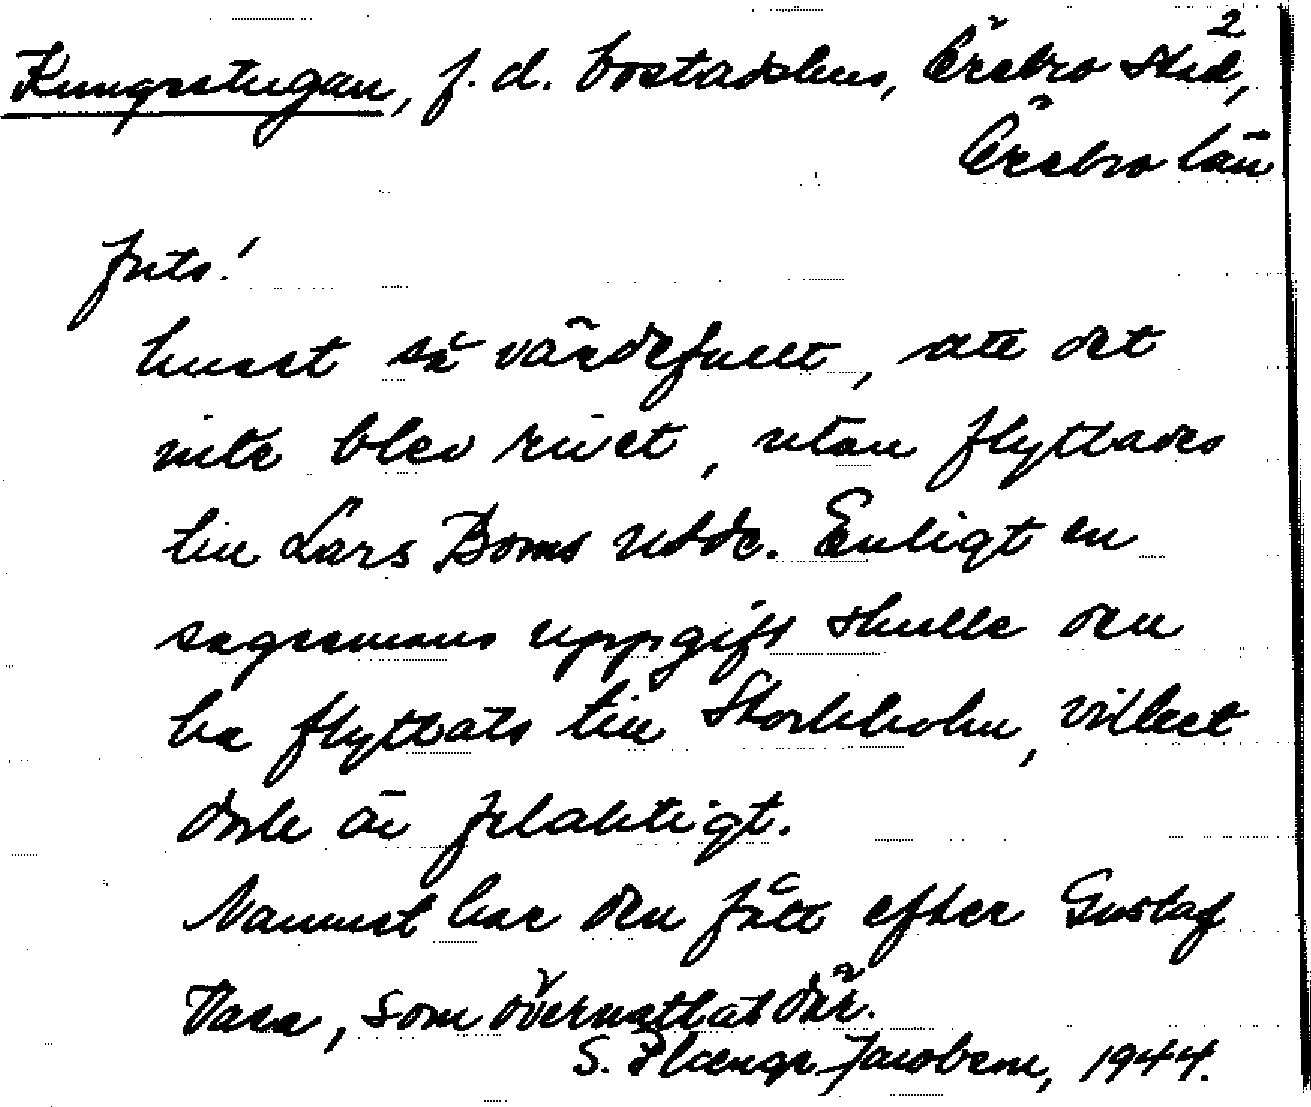 2
Kungsstugan, f. d. bostadshus, Örebro stad,
Örebro län
forts!
huset så värdefullt, att det
inte blev rivet, utan flyttades
till Lars Boms udde. Enligt en
sagesmans uppgift skulle den
ha flyttats till Stockholm, vilket
dock är felaktigt.
Namnet har den fått efter Gustaf
Vasa, som övernattat där.
S. Jacobsen, 1944.